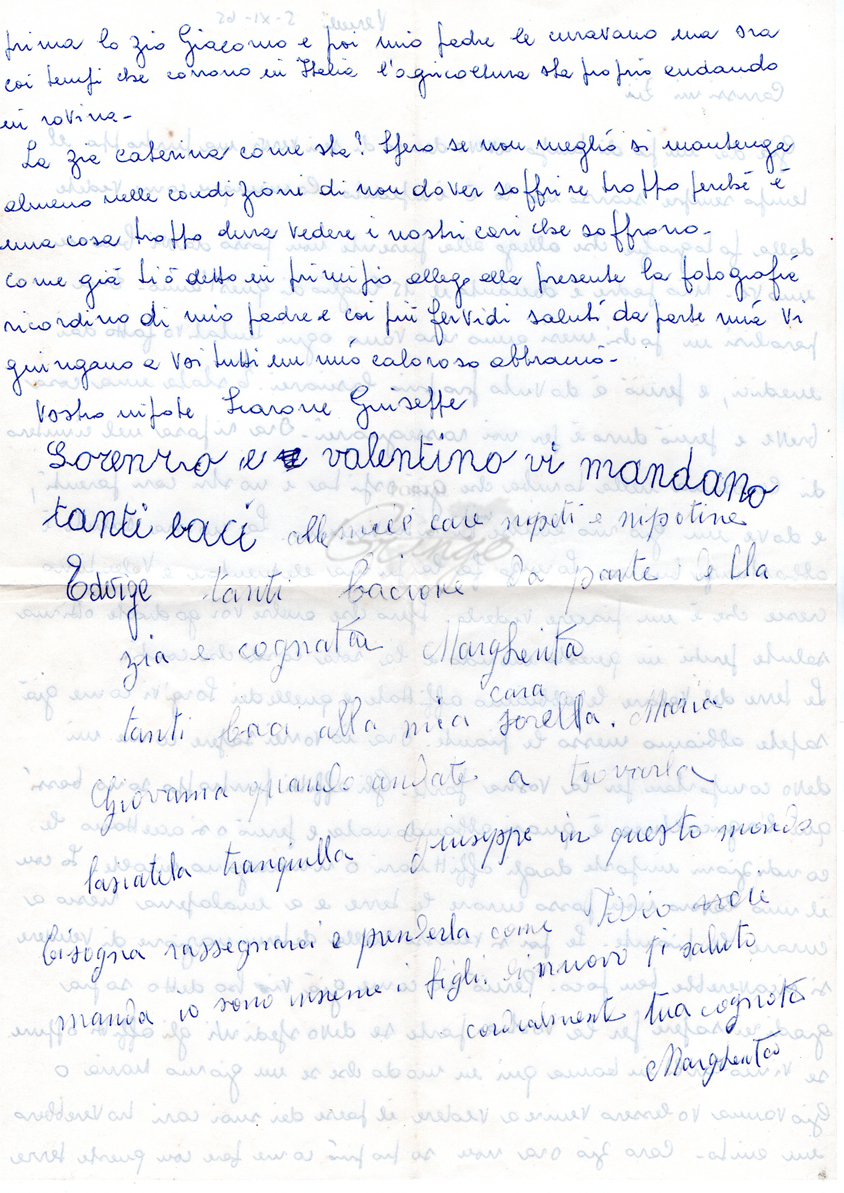 prima lo zio Giacomo e poi mio padre le curavano ma ora
coi tempi che corrono in Italia l'agricoltura sta proprio andando
in rovina -
La zia Caterina come sta? Spero se non meglio si mantenga
almeno nelle condizioni di non dover soffrire troppo perché è
una cosa troppo dura vedere i nostri cari che soffrono -
come già ti ò detto in principio allego alla presente la fotografia
ricordino di mio padre e coi più fervidi saluti da parte mia vi
giungano a voi tutti un mio caloroso abbraccio -
Vostro nipote Giuseppe
Lorenzo e valentino vi mandano
tanti baci alle miei care nipoti e nipotine
Edvige tanti bacione da parte della
zia e cognata Margherita
cara
tanti baci alla mia sorella. Maria
Giovanna quando andate a trovarla
lasciatela tranquilla Giuseppe in questo mondo
bisogna rassegnarci e prenderla come Iddio
manda io sono insieme i figli. di nuovo ti saluto
cordialmente tua cognata
Margherita